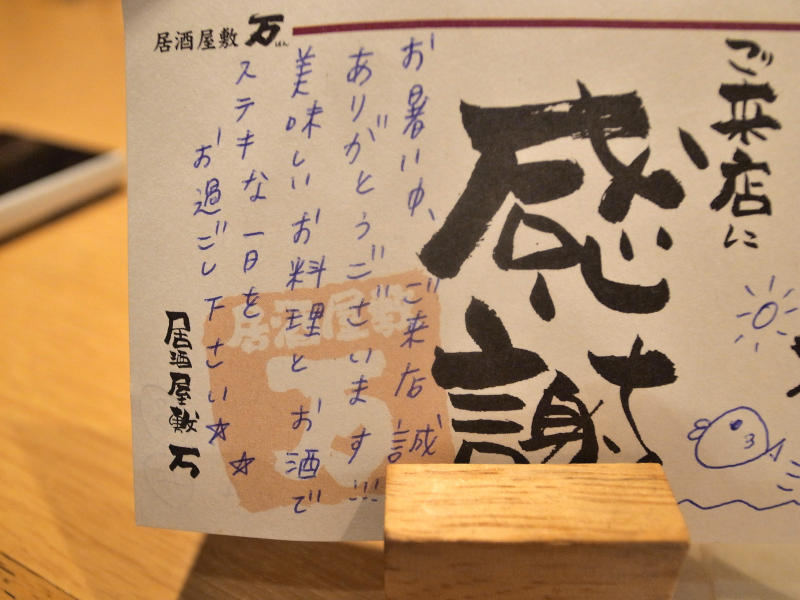 居酒屋敷 万
ばん
ご来店に
感謝
お暑い中、ご来店 誠
ありがとうございます!!!
美味しいお料理と お酒で
ステキな一日を
お過ごし下さい☆☆
居酒屋敷 万
居酒屋敷
万